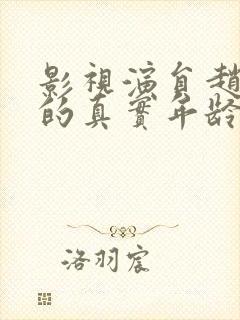 影視演員趙
的真實年齡
洛羽宸